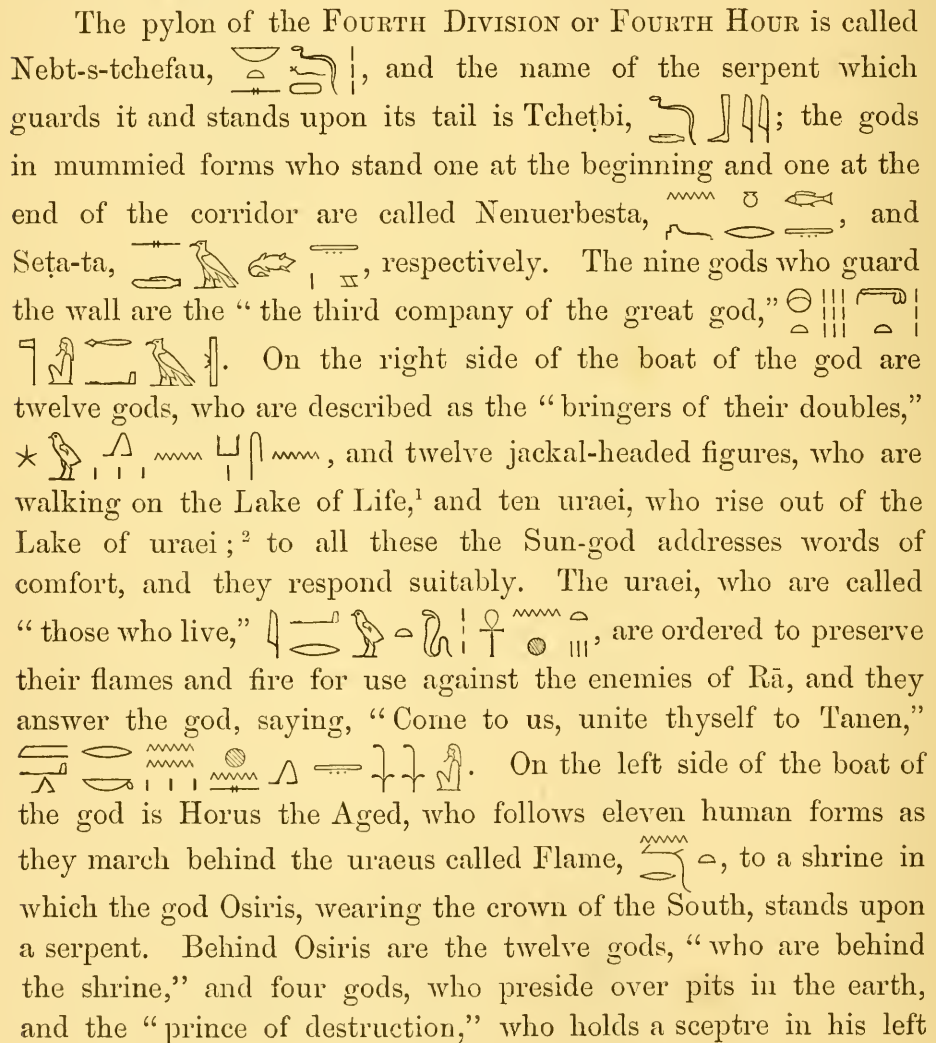 The pylon of the FOURTH DIVISION or FOURTH HOUR is called
Nebt-s-tchefau, , and the name of the serpent which
guards it and stands upon its tail is Tcheṭbi, ; the gods
in mummied forms who stand one at the beginning and one at the
end of the corridor are called Nenuerbesta, , and
Seṭa-ta, , respectively. The nine gods who guard
the wall are the “ the third company of the great god,”
. On the right side of the boat of the god are
twelve gods, who are described as the “ bringers of their doubles,”
, and twelve jackal-headed figures, who are
walking on the Lake of Life,¹ and ten uraei, who rise out of the
Lake of uraei ; ² to all these the Sun-god addresses words of
comfort, and they respond suitably. The uraei, who are called
“ those who live,” , are ordered to preserve
their flames and fire for use against the enemies of Rā, and they
answer the god, saying, “ Come to us, unite thyself to Tanen,”
. On the left side of the boat of
the god is Horus the Aged, who follows eleven human forms as
they march behind the uraeus called Flame, , to a shrine in
which the god Osiris, wearing the crown of the South, stands upon
a serpent. Behind Osiris are the twelve gods, “ who are behind
the shrine,” and four gods, who preside over pits in the earth,
and the “ prince of destruction,” who holds a sceptre in his left